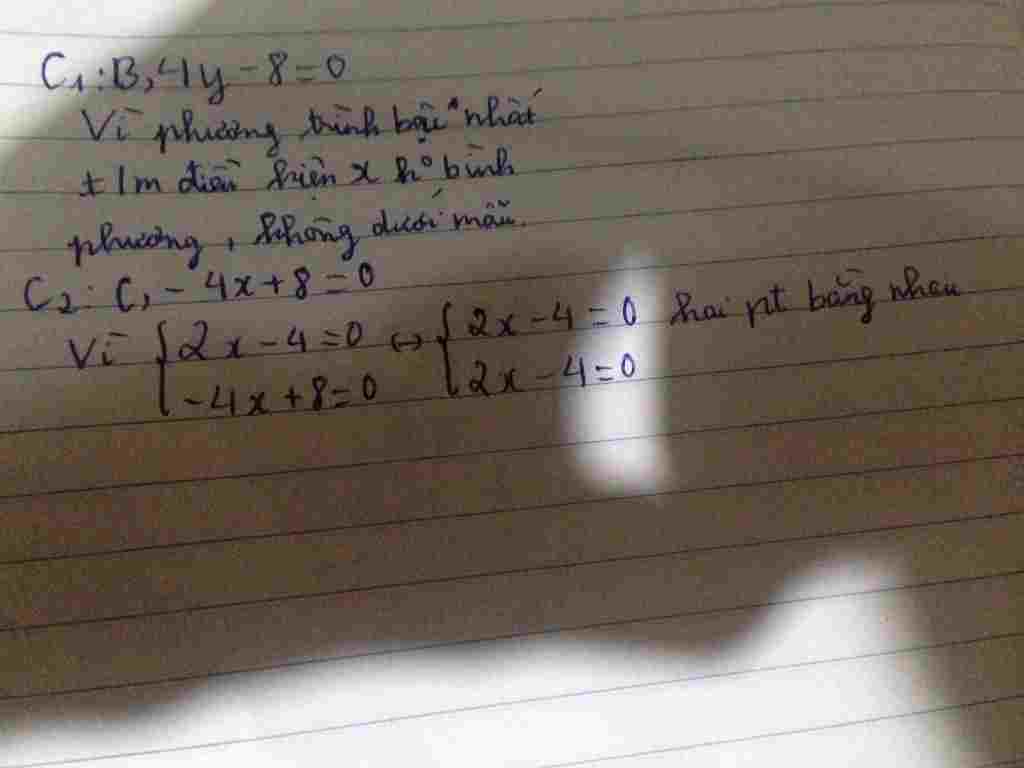 C1: B, 4y - 8 = 0
Vì phương trình bậc nhất
±1m điều kiện x k° bình
phương, không dưới mẫu.
C2: C, - 4x + 8 = 0
Vì { 2x - 4 = 0 ↔ { 2x - 4 = 0 hai pt bằng nhau
-4x + 8 = 0 2x - 4 = 0